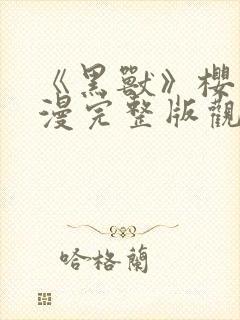 《黑獸》櫻
漫完整版觀
哈格蘭